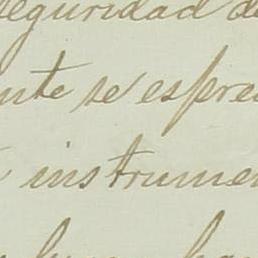 seguridad de
nte se espre
instrumen